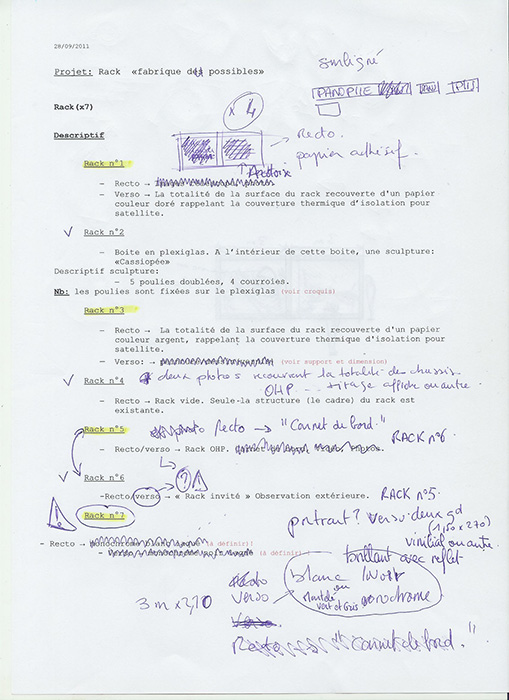 28/09/2011
surligné
Projet: Rack «fabrique des possibles»
PANOPLIE
Rack(x7)
x 4
Descriptif
Recto.
papier adhésif.
Rack n°1
Ardoise
– Recto →
– Verso → La totalité de la surface du rack recouverte d'un papier
couleur doré rappelant la couverture thermique d'isolation pour
satellite.
Rack n°2
– Boite en plexiglas. A l'intérieur de cette boite, une sculpture:
«Cassiopée»
Descriptif sculpture:
– 5 poulies doublées, 4 courroies.
Nb: les poulies sont fixées sur le plexiglas (voir croquis)
Rack n°3
– Recto → La totalité de la surface du rack recouverte d'un papier
couleur argent, rappelant la couverture thermique d'isolation pour
satellite.
– Verso: → (voir support et dimension)
Rack n°4 deux photos recouvrent la totalité des chassis
OHP ... tirage affiche ou autre.
– Recto → Rack vide. Seule la structure (le cadre) du rack est
existante.
Rack n°5 Recto → "Carnet de bord."
RACK n°6
– Recto/verso → Rack OHP.
Rack n°6
? !
-Recto/verso → « Rack invité » Observation extérieure. RACK n°5
! Rack n°7
portrait? verso: deux gd
(1,50 x 270)
vinil ou autre.
– Recto → (à définir)
– (à définir)
brillant avec reflet
blanc / Noir
ou
vert et Gris monochrome
Recto
Verso
3 m x 2,10
Verso
Recto "Carnet de bord."